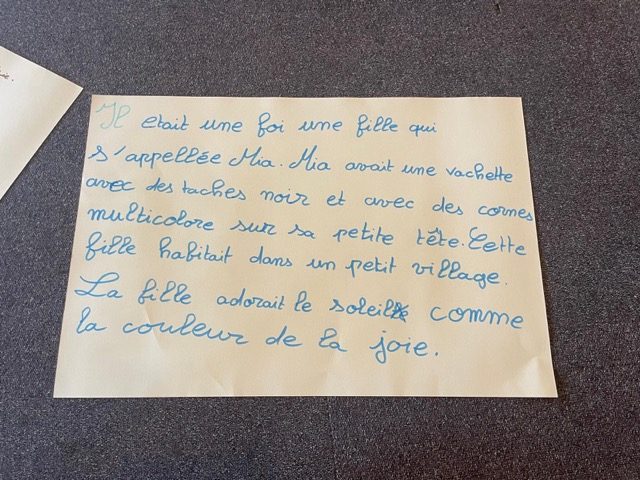 Il etait une foi une fille qui
s'appellée Mia. Mia avait une vachette
avec des taches noir et avec des cornes
multicolore sur sa petite tête. Cette
fille habitait dans un petit village.
La fille adorait le soleil comme
la couleur de la joie.